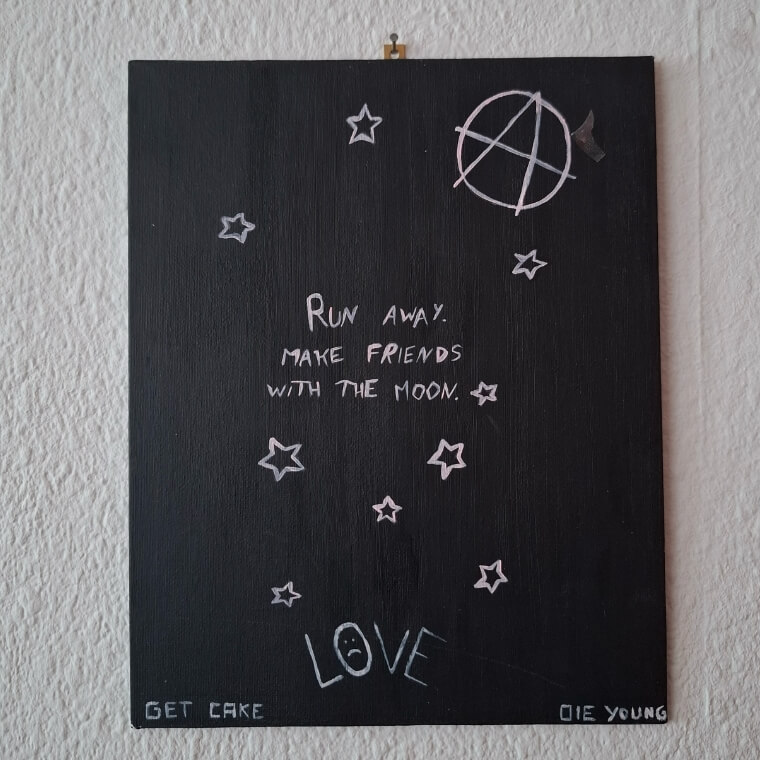 A
RUN AWAY.
MAKE FRIENDS
WITH THE MOON.
LOVE
GET CAKE
DIE YOUNG